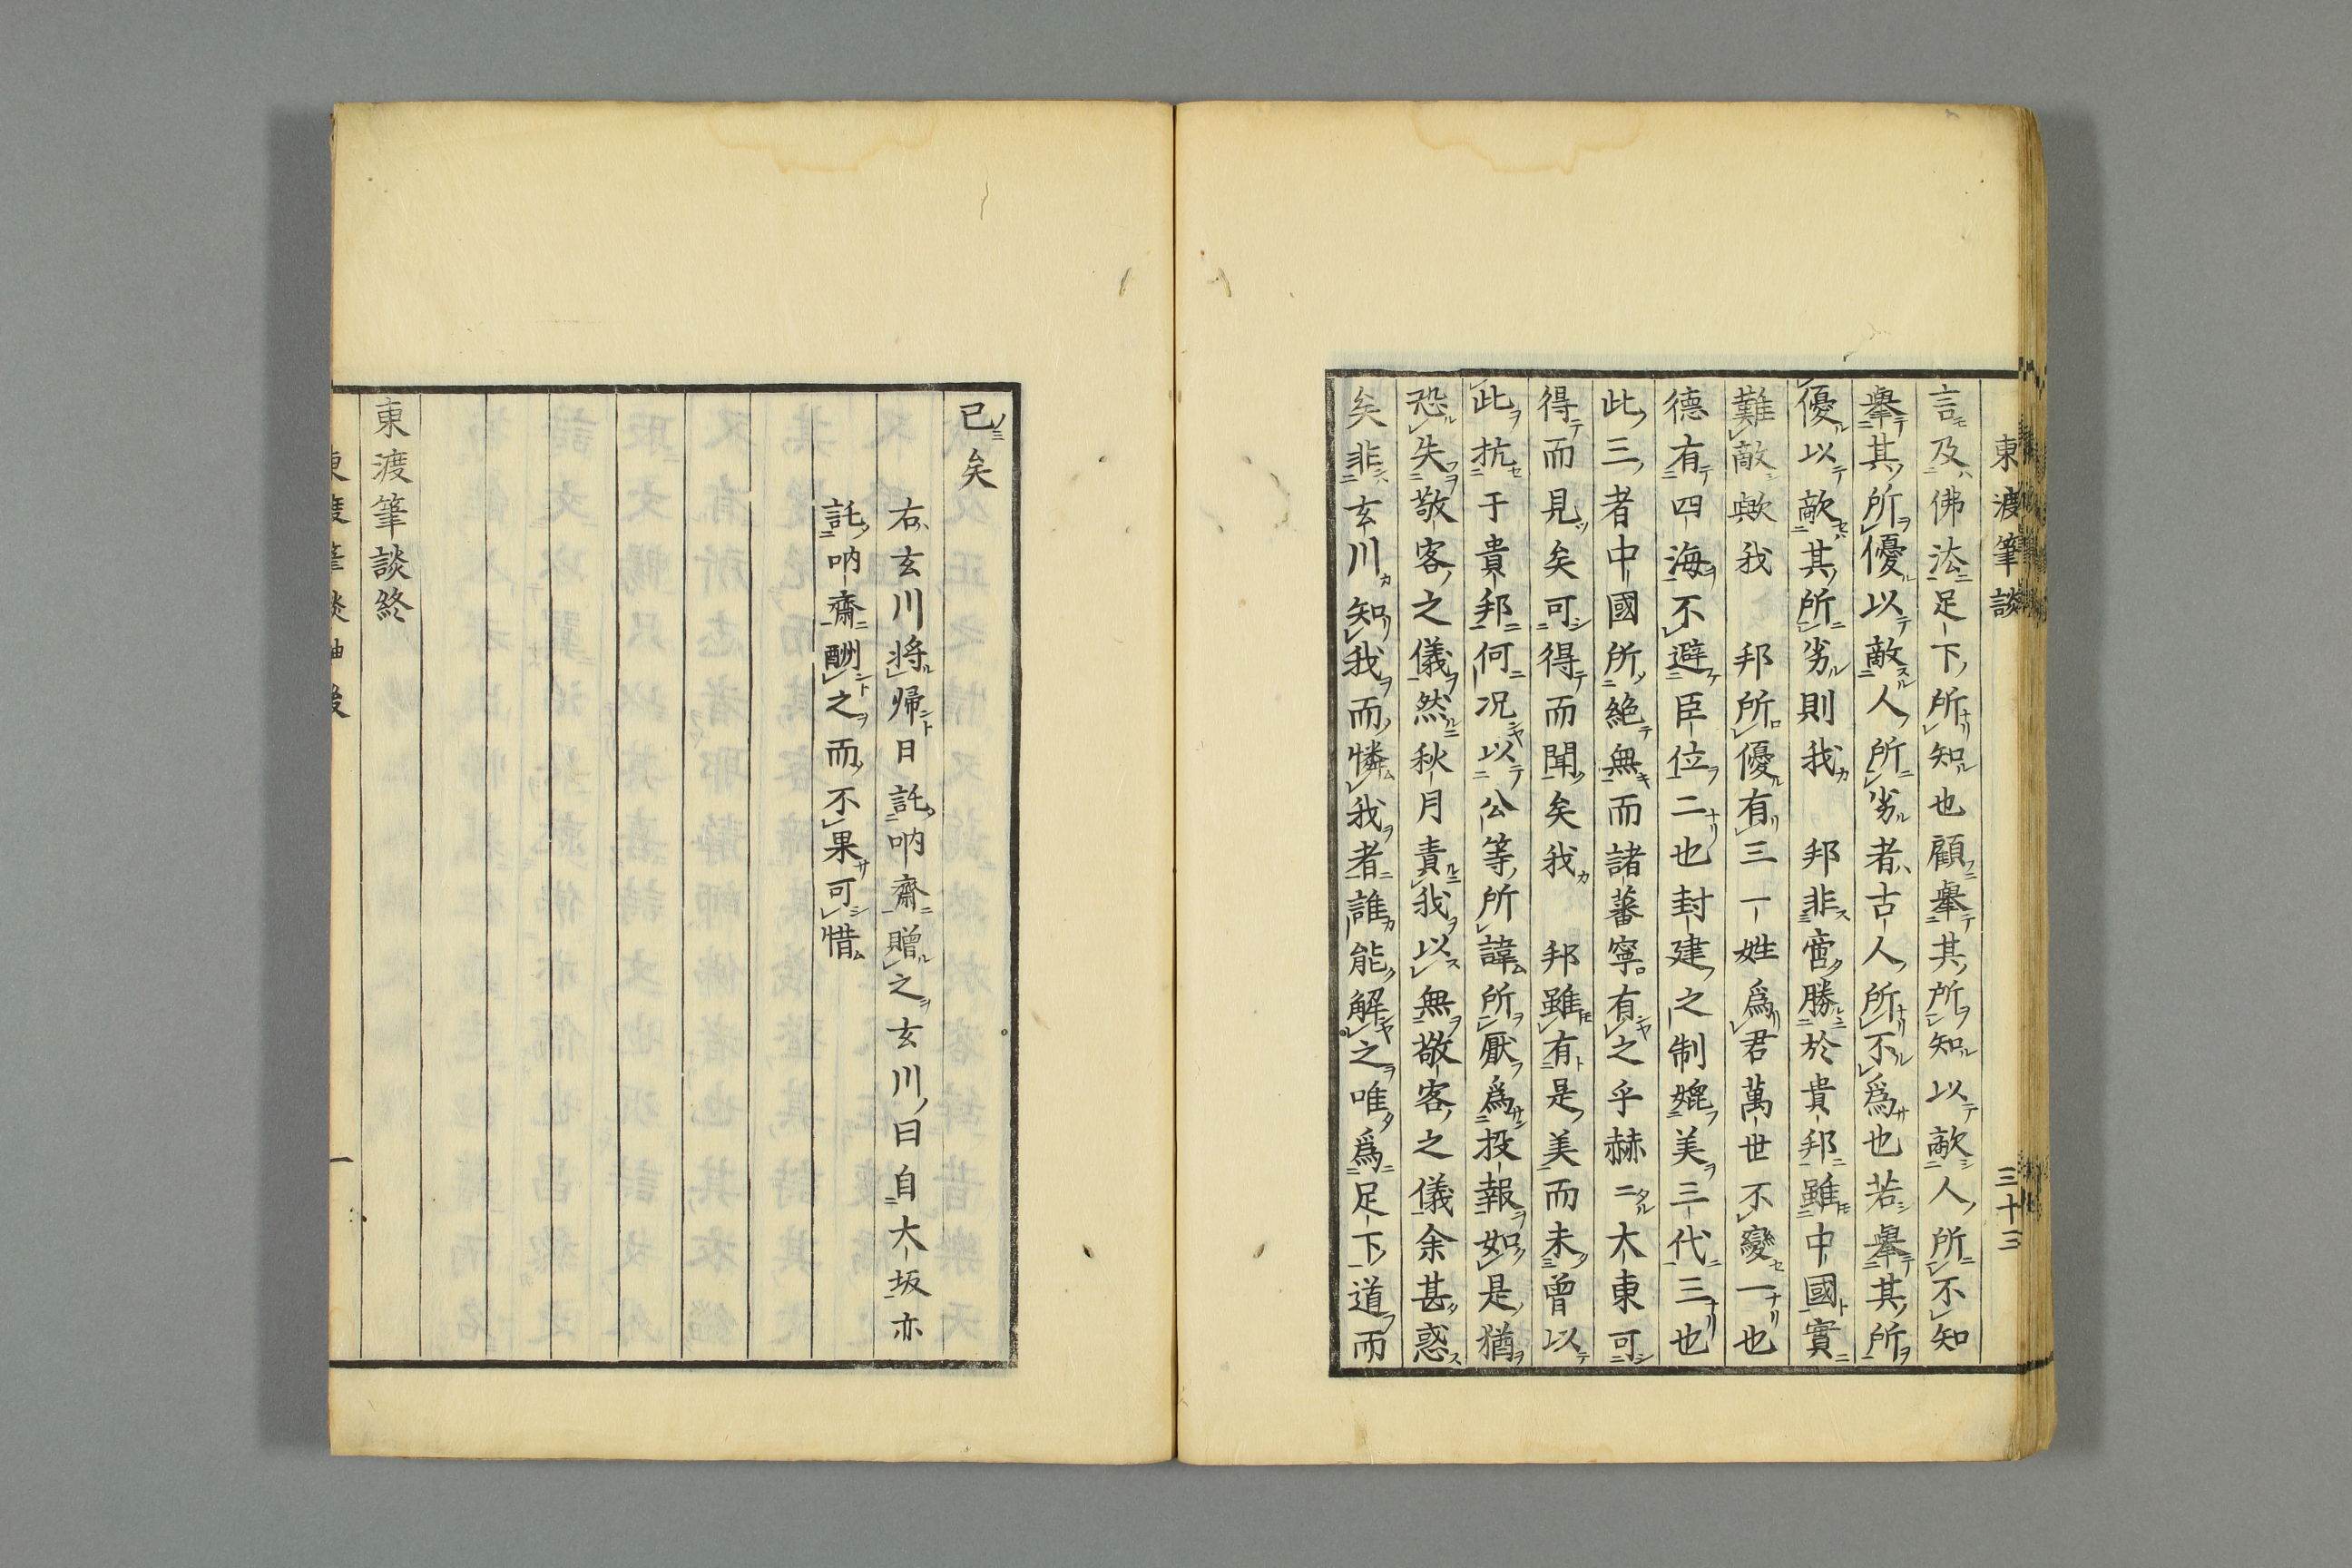 東渡筆談 三十三
言及佛法足下所知也顧舉其所知以敵人所不知
舉其所優以敵人所劣者古人所不爲也若舉其所
優以敵其所劣則我 邦非啻勝於貴邦雖中國實
難敵歟我 邦所優有三一姓爲君萬世不變一也
德有四海不避臣位二也封建之制媲美三代三也
此三者中國所絶無而諸蕃寧有之乎赫赫大東可
得而見矣可得而聞矣我 邦雖有是美而未曾以
此抗于貴邦何況以公等所諱所厭爲投報如是猶
恐失敬客之儀然秋月責我以無敬客之儀余甚惑
矣非玄川知我而憐我者誰能解之唯爲足下道而
已矣
右玄川將帰日託吶齋贈之玄川曰自大坂亦
託吶齋酬之而不果可惜
東渡筆談終